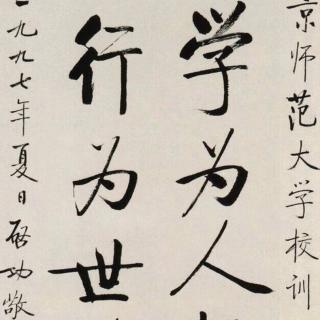 京师范大学校训
学为人
行为世
一九九七年夏日启功敬